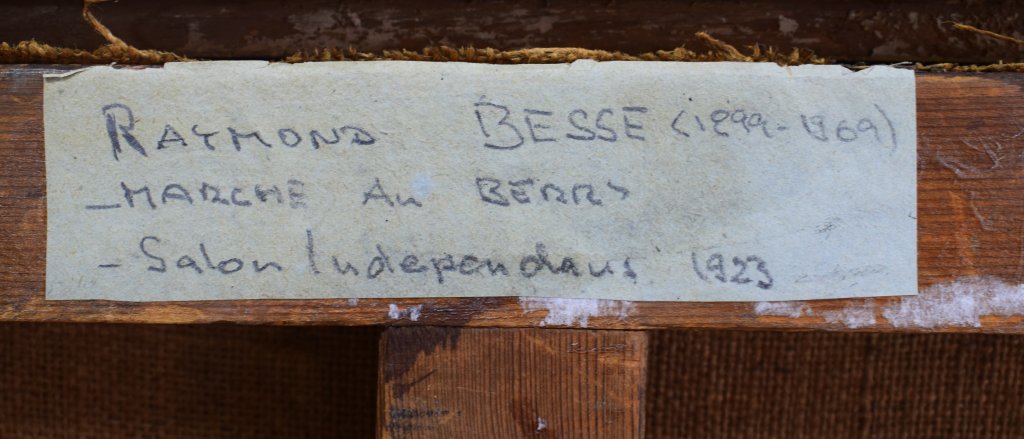 RAYMOND BESSE (1899-1969)
- MARCHE AU BERRY
- Salon Independans 1923